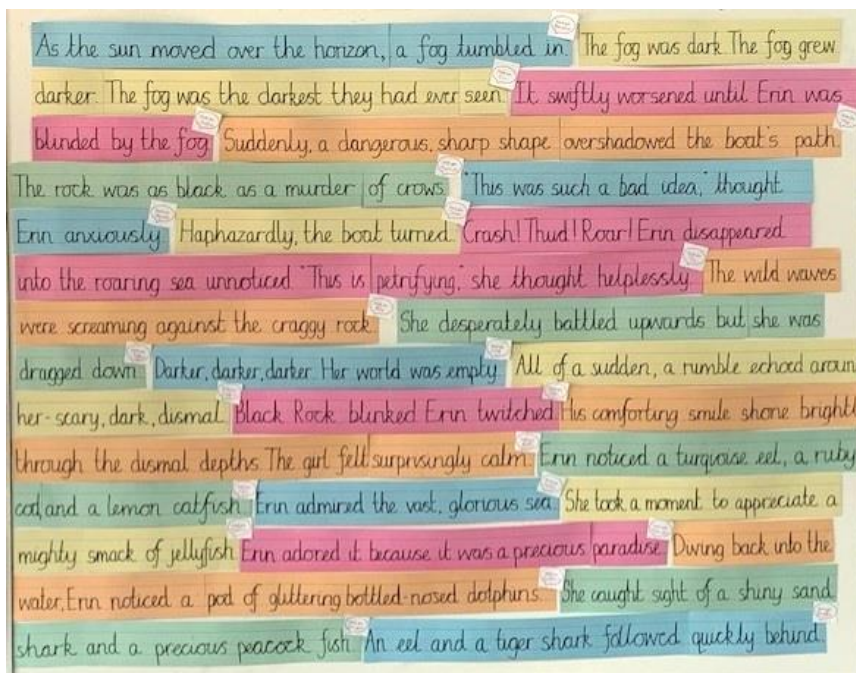 As the sun moved over the horizon, a fog tumbled in. The fog was dark. The fog grew
darker. The fog was the darkest they had ever seen. It swiftly worsened until Erin was
blinded by the fog. Suddenly, a dangerous, sharp shape overshadowed the boat's path.
The rock was as black as a murder of crows. "This was such a bad idea," thought
Erin anxiously. Haphazardly, the boat turned. Crash! Thud! Roar! Erin disappeared
into the roaring sea unnoticed. "This is petrifying," she thought helplessly. The wild waves
were screaming against the craggy rock. She desperately battled upwards but she was
dragged down. Darker, darker, darker. Her world was empty. All of a sudden, a rumble echoed aroun
her - scary, dark, dismal. Black Rock blinked. Erin twitched. His comforting smile shone brightl
through the dismal depths. The girl felt surprisingly calm. Erin noticed a turquoise eel, a ruby
cod, and a lemon catfish. Erin admired the vast, glorious sea. She took a moment to appreciate a
mighty smack of jellyfish. Erin adored it because it was a precious paradise. Diving back into the
water, Erin noticed a pod of glittering bottled-nosed dolphins. She caught sight of a shiny sand
shark and a precious peacock fish. An eel and a tiger shark followed quickly behind.